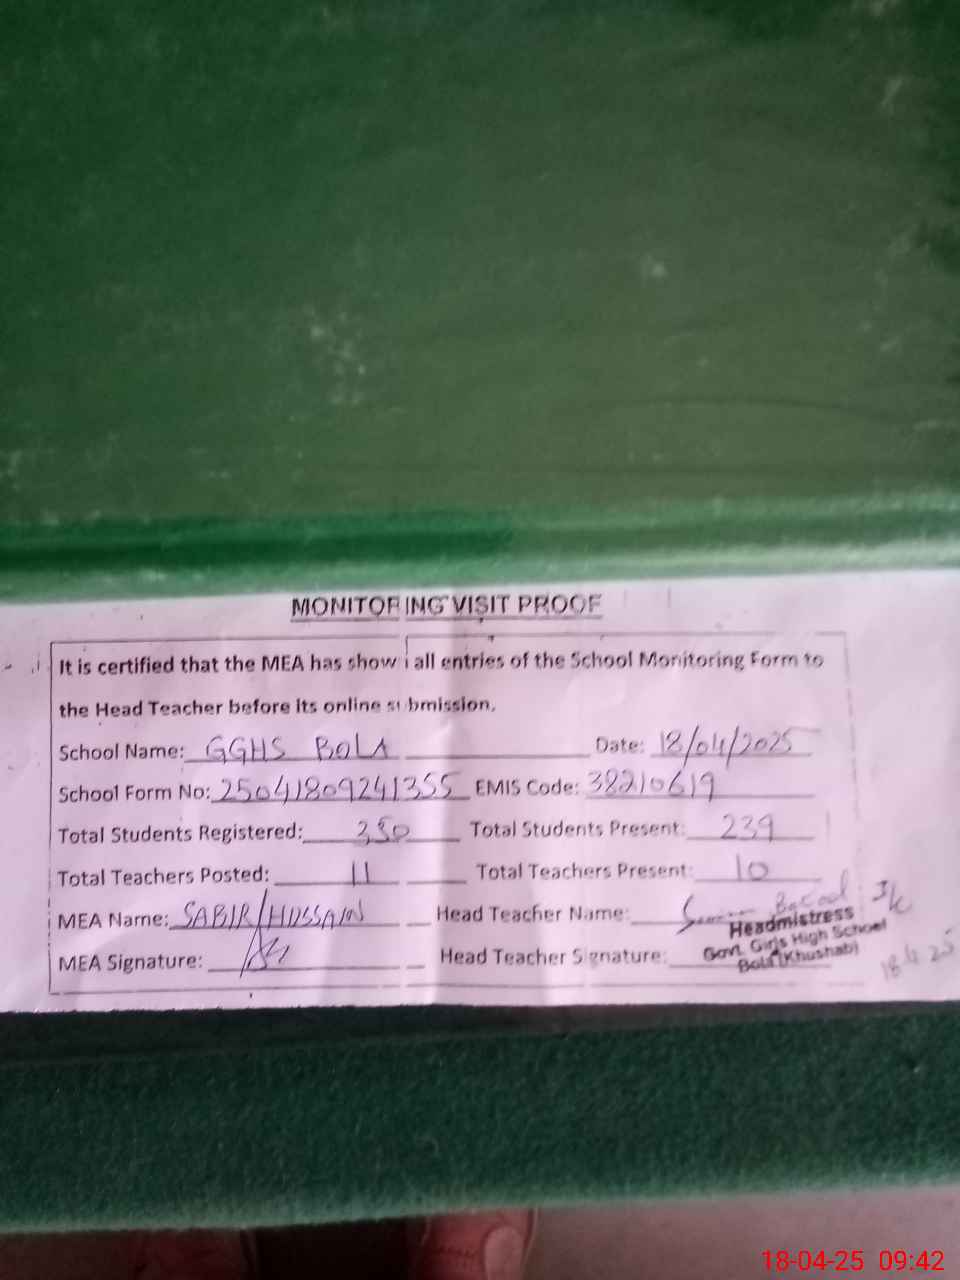 MONITORING VISIT PROOF
It is certified that the MEA has shown all entries of the School Monitoring Form to
the Head Teacher before its online submission.
School Name: GGHS BOLA Date: 18/04/2025
School Form No: 25041809241355 EMIS Code: 38210619
Total Students Registered: 350 Total Students Present: 239
Total Teachers Posted: 11 Total Teachers Present: 10
MEA Name: SABIR HUSSAIN Head Teacher Name: I/c
Headmistress
MEA Signature: Head Teacher Signature: Govt. Girls High School
Bola (Khushab)
18 4 25
18-04-25 09:42